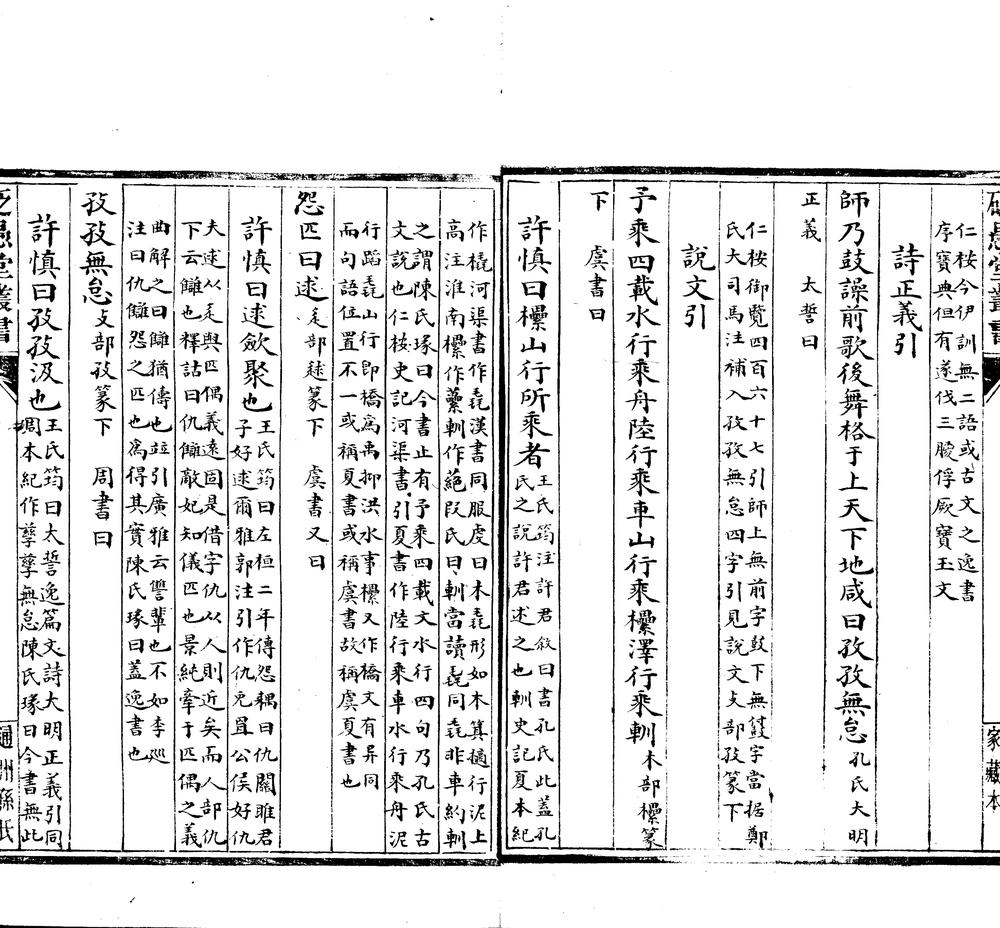 仁桉今伊訓無二語或古文之逸書
序寶典但有遂伐三朡俘厥寶玉文
詩正義引
師乃鼓譟前歌後舞格于上天下地咸曰孜孜無怠孔氏大明
正義 太誓曰
仁桉御覽四百六十七引師上無前字鼓下無鼓字當据鄭
氏大司馬注補入孜孜無怠四字引見說文攴部孜篆下
說文引
予乘四載水行乘舟陸行乘車山行乘欙澤行乘輴木部欙篆
下 虞書曰
許慎曰欙山行所乘者王氏筠注許君敘曰書孔氏此蓋孔
氏之說許君述之也輴史記夏本紀
作橇河渠書作毳漢書同服虔曰木毳形如木箕擿行泥上
高注淮南欙作蔂輴作蕝段氏曰輴當讀毳同毳非車約輴
之謂陳氏瑑曰今書止有予乘四載文水行四句乃孔氏古
文說也仁桉史記河渠書引夏書作陸行乘車水行乘舟泥
行蹈毳山行卽橋寫禹抑洪水事欙又作橋文有異同
而句語位置不一或稱夏書或稱虞書故稱虞夏書也
怨匹曰逑辵部逑篆下 虞書又曰
許慎曰逑斂聚也王氏筠曰左桓二年傳怨耦曰仇關雎君
子好逑爾雅郭注引作仇兔罝公侯好仇
夫逑从辵與匹偶義遠固是借字仇从人則近矣而人部仇
下云讎也釋詁曰仇讎敵妃知儀匹也景純牽于匹偶之義
曲解之曰讎猶儔也竝引廣雅云讐輩也不如李巡
注曰仇讎怨之匹也爲得其實陳氏瑑曰蓋逸書也
孜孜無怠攴部孜篆下 周書曰
許慎曰孜孜汲也王氏筠曰太誓逸篇文詩大明正義引同
周本紀作孳孳無怠陳氏瑑曰今書無此
家藏本
通州孫氏